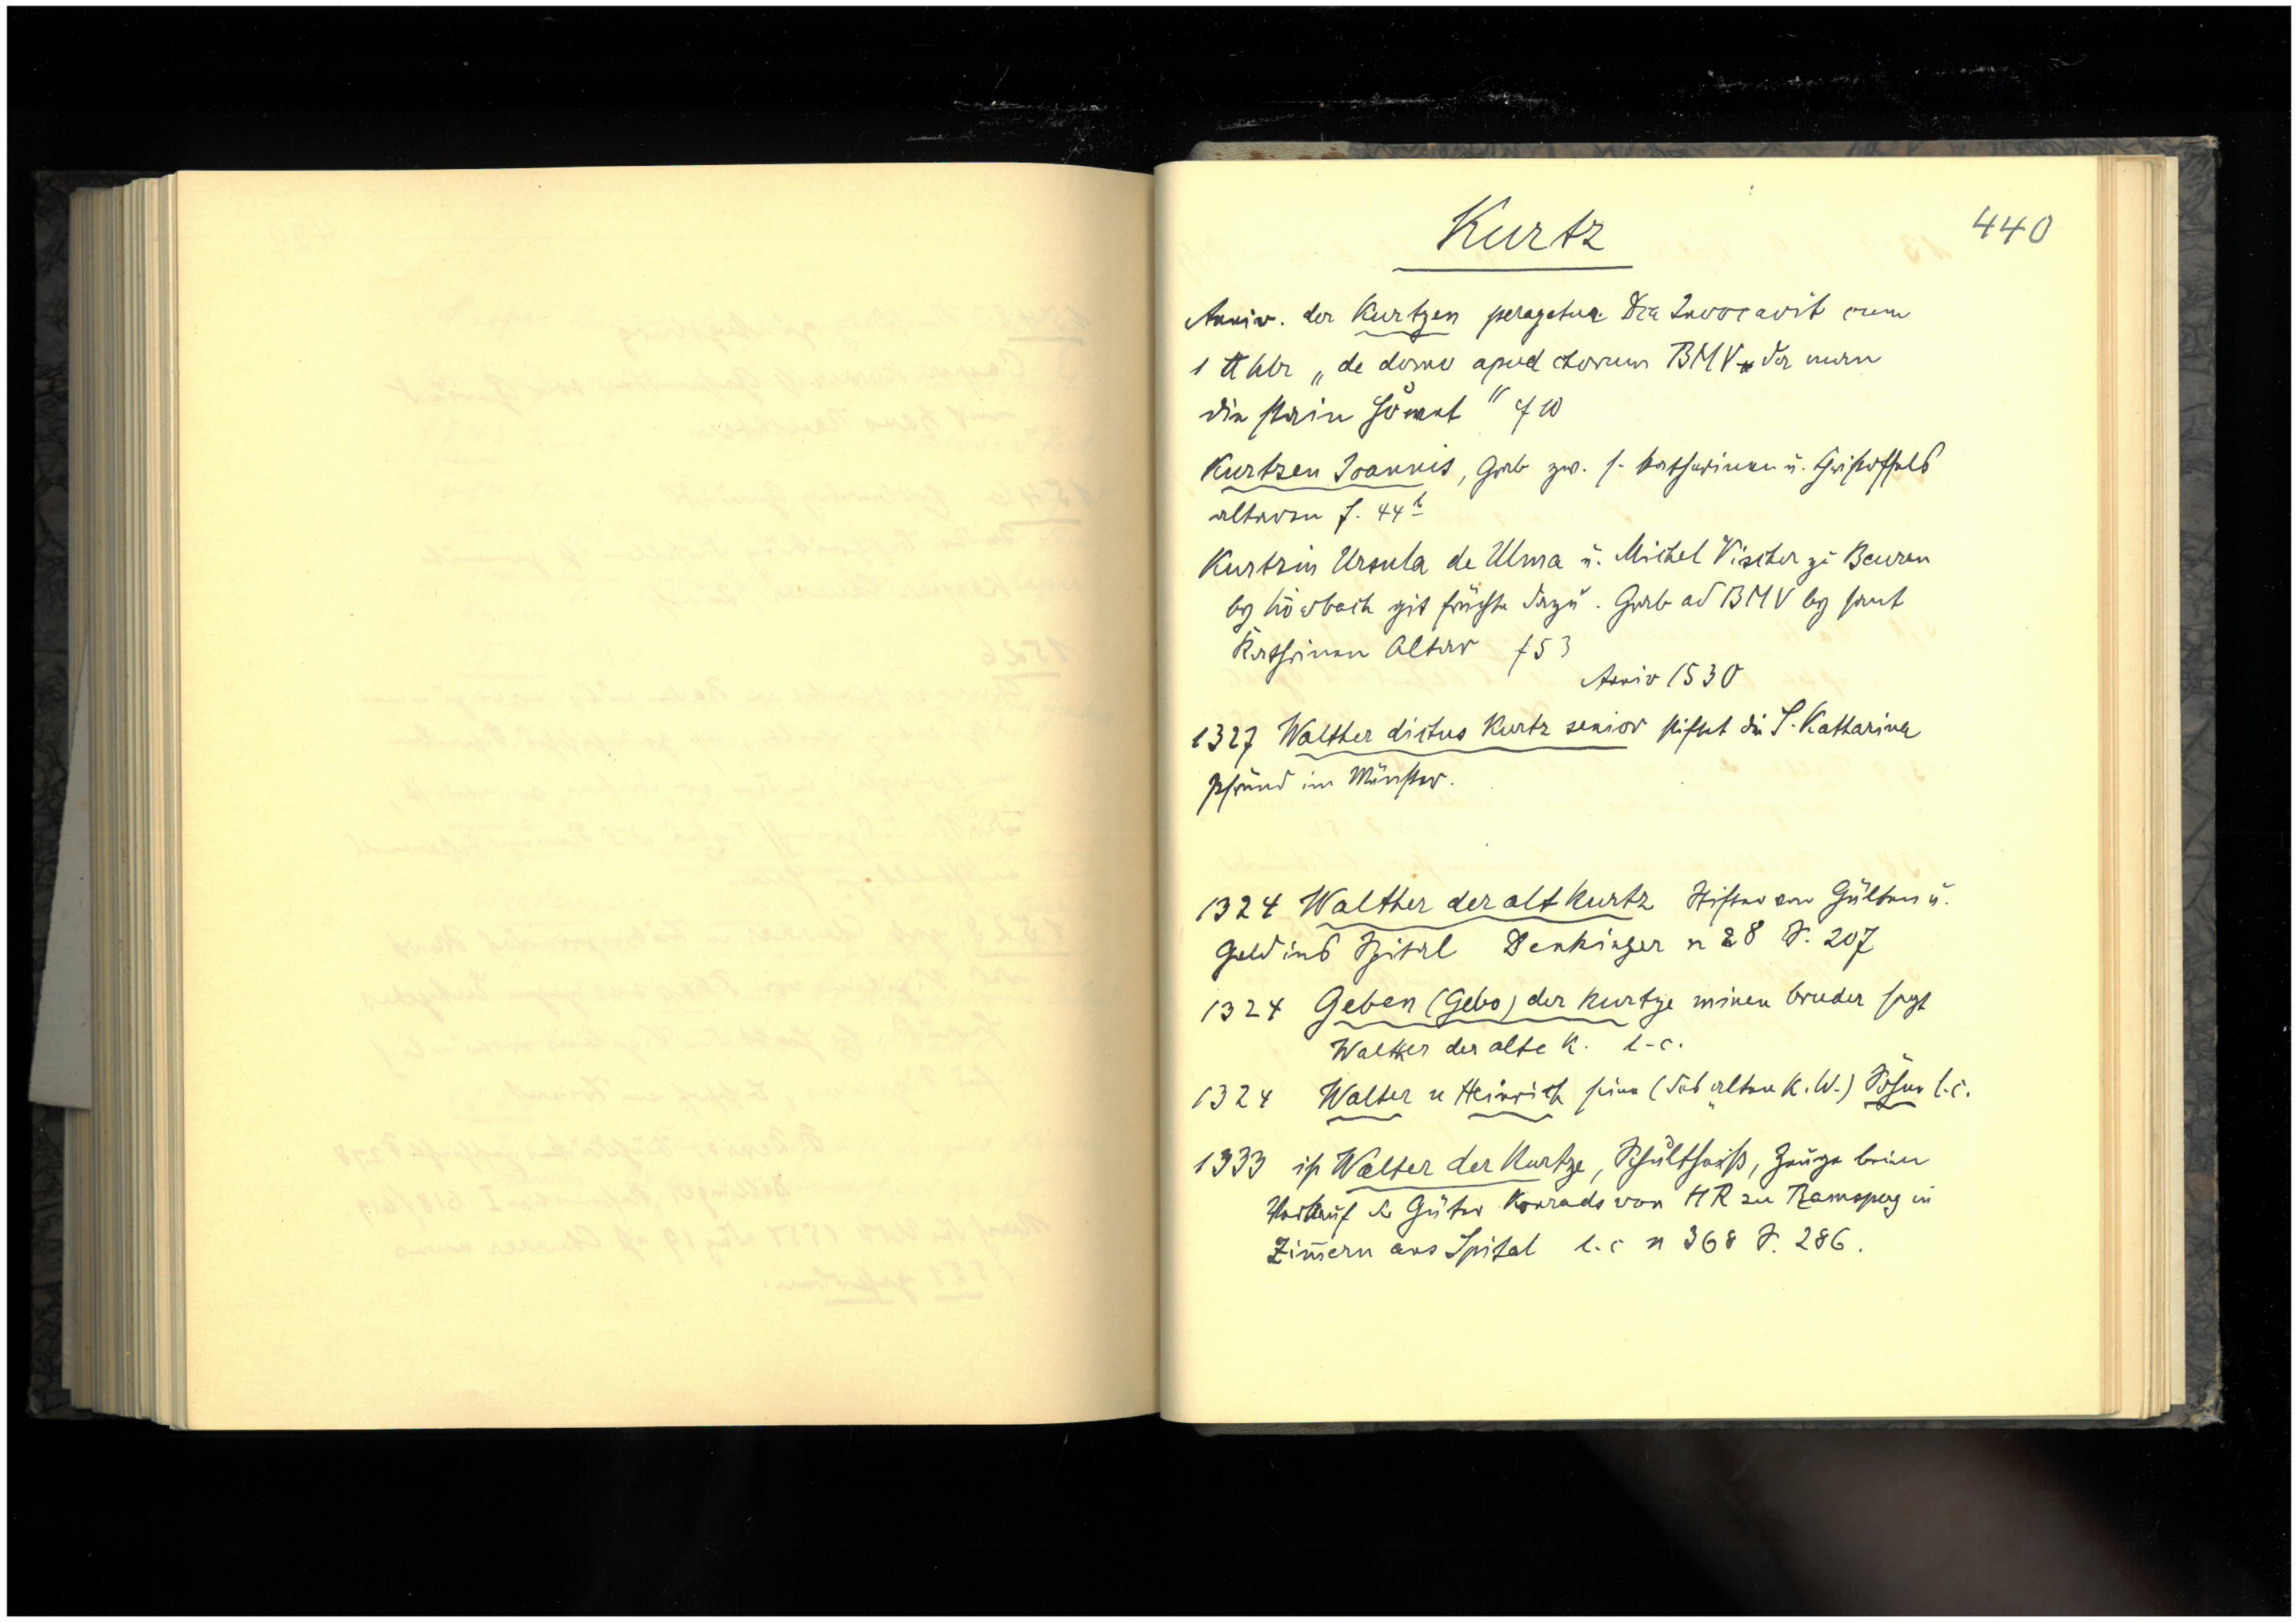 440
Kurtz
Anniv. der Kurtzen peragetur Dca Invocavit cum
1 ℔ hlr „de domo apud chorum BMV der man
die stain "f 10
Kurtzen Joannis, Grab zw. s. Katharinen u. Christoffels
altaren f. 44b
Kurtzin Ursula de Ulma u. Michel Vischer zu Beuren
by git früchte dazu. Grab ad BMV by sant
Kathrinen Altar f 53
Anniv 1530
1327 Walther dictus Kurtz senior stiftet die S. Katharina
Pfründ im Münster.
1324 Walther der alt Kurtz Stifter von Gülten u.
Geld ins Spital Denkinger n 28 S. 207
1324 Geben (Gebo) der Kurtze minen bruder sagt
Walther der alte K. l.c.
1324 Walter u Heinrich seine (des alten K. W.) Söhne l.c.
1333 ist Walter der Kurtze, Schultheiß, Zeuge beim
Verkauf der Güter Konrads von HR zu Ramsperg in
Zim̄ern ans Spital l.c n 368 S. 286.